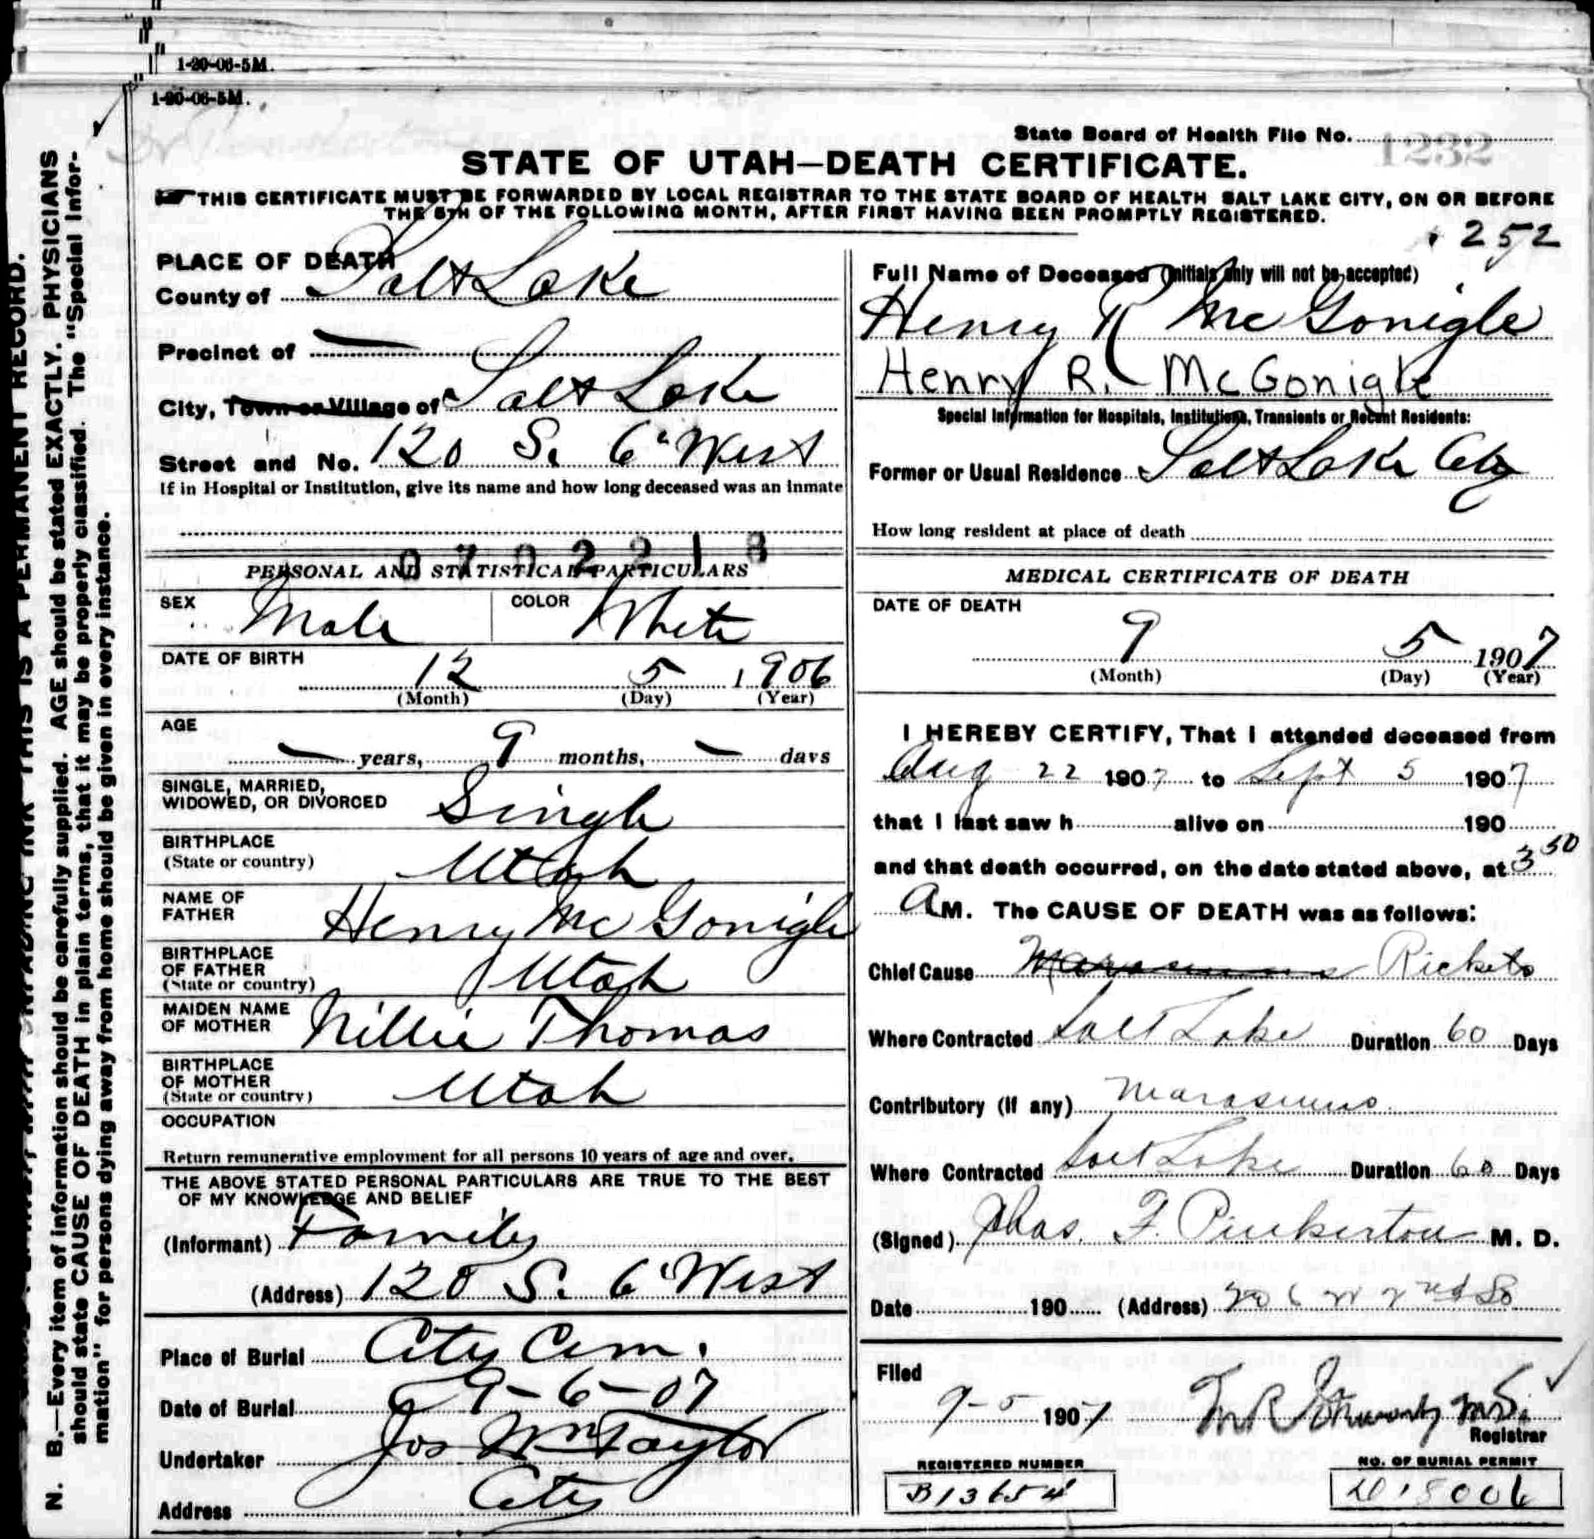 1-20-06-5M.
1-20-06-5M.
State Board of Health File No. 1232
STATE OF UTAH—DEATH CERTIFICATE.
THIS CERTIFICATE MUST BE FORWARDED BY LOCAL REGISTRAR TO THE STATE BOARD OF HEALTH SALT LAKE CITY, ON OR BEFORE
THE 5TH OF THE FOLLOWING MONTH, AFTER FIRST HAVING BEEN PROMPTLY REGISTERED.
252
PLACE OF DEATH
County of Salt Lake
Precinct of —
City, Town or Village of Salt Lake
Street and No. 120 S. 6" West
If in Hospital or Institution, give its name and how long deceased was an inmate
0702218
PERSONAL AND STATISTICAL PARTICULARS
SEX Male COLOR White
DATE OF BIRTH 12 5 1906
(Month) (Day) (Year)
AGE
— years, 9 months, — days
SINGLE, MARRIED,
WIDOWED, OR DIVORCED Single
BIRTHPLACE
(State or country) Utah
NAME OF
FATHER Henry McGonigle
BIRTHPLACE
OF FATHER
(State or country) Utah
MAIDEN NAME
OF MOTHER Nillie Thomas
BIRTHPLACE
OF MOTHER
(State or country) Utah
OCCUPATION
Return remunerative employment for all persons 10 years of age and over.
THE ABOVE STATED PERSONAL PARTICULARS ARE TRUE TO THE BEST
OF MY KNOWLEDGE AND BELIEF
(Informant) Family
(Address) 120 S. 6" West
Place of Burial City Cem.
Date of Burial 9-6-07
Undertaker Jos Wm Taylor
Address City
Full Name of Deceased (Initials only will not be accepted)
Henry R McGonigle
Henry R. McGonigle
Special Information for Hospitals, Institutions, Transients or Recent Residents:
Former or Usual Residence Salt Lake City
How long resident at place of death
MEDICAL CERTIFICATE OF DEATH
DATE OF DEATH
9 5 1907
(Month) (Day) (Year)
I HEREBY CERTIFY, That I attended deceased from
Aug 22 1907 to Sept 5 1907
that I last saw h alive on 190
and that death occurred, on the date stated above, at 3 50
A M. The CAUSE OF DEATH was as follows:
Chief Cause Marasmus Rickets
Where Contracted Salt Lake Duration 60 Days
Contributory (if any) Marasmus
Where Contracted Salt Lake Duration 60 Days
(Signed) Chas. F. Pinkerton M. D.
Date 190 (Address) 206 W 2nd So
Filed
9-5 1907
Registrar
REGISTERED NUMBER
B13654
NO. OF BURIAL PERMIT
N. B.—Every item of information should be carefully supplied. AGE should be stated EXACTLY. PHYSICIANS
should state CAUSE OF DEATH in plain terms, that it may be properly classified. The "Special Infor-
mation" for persons dying away from home should be given in every instance.
THIS IS A PERMANENT RECORD.